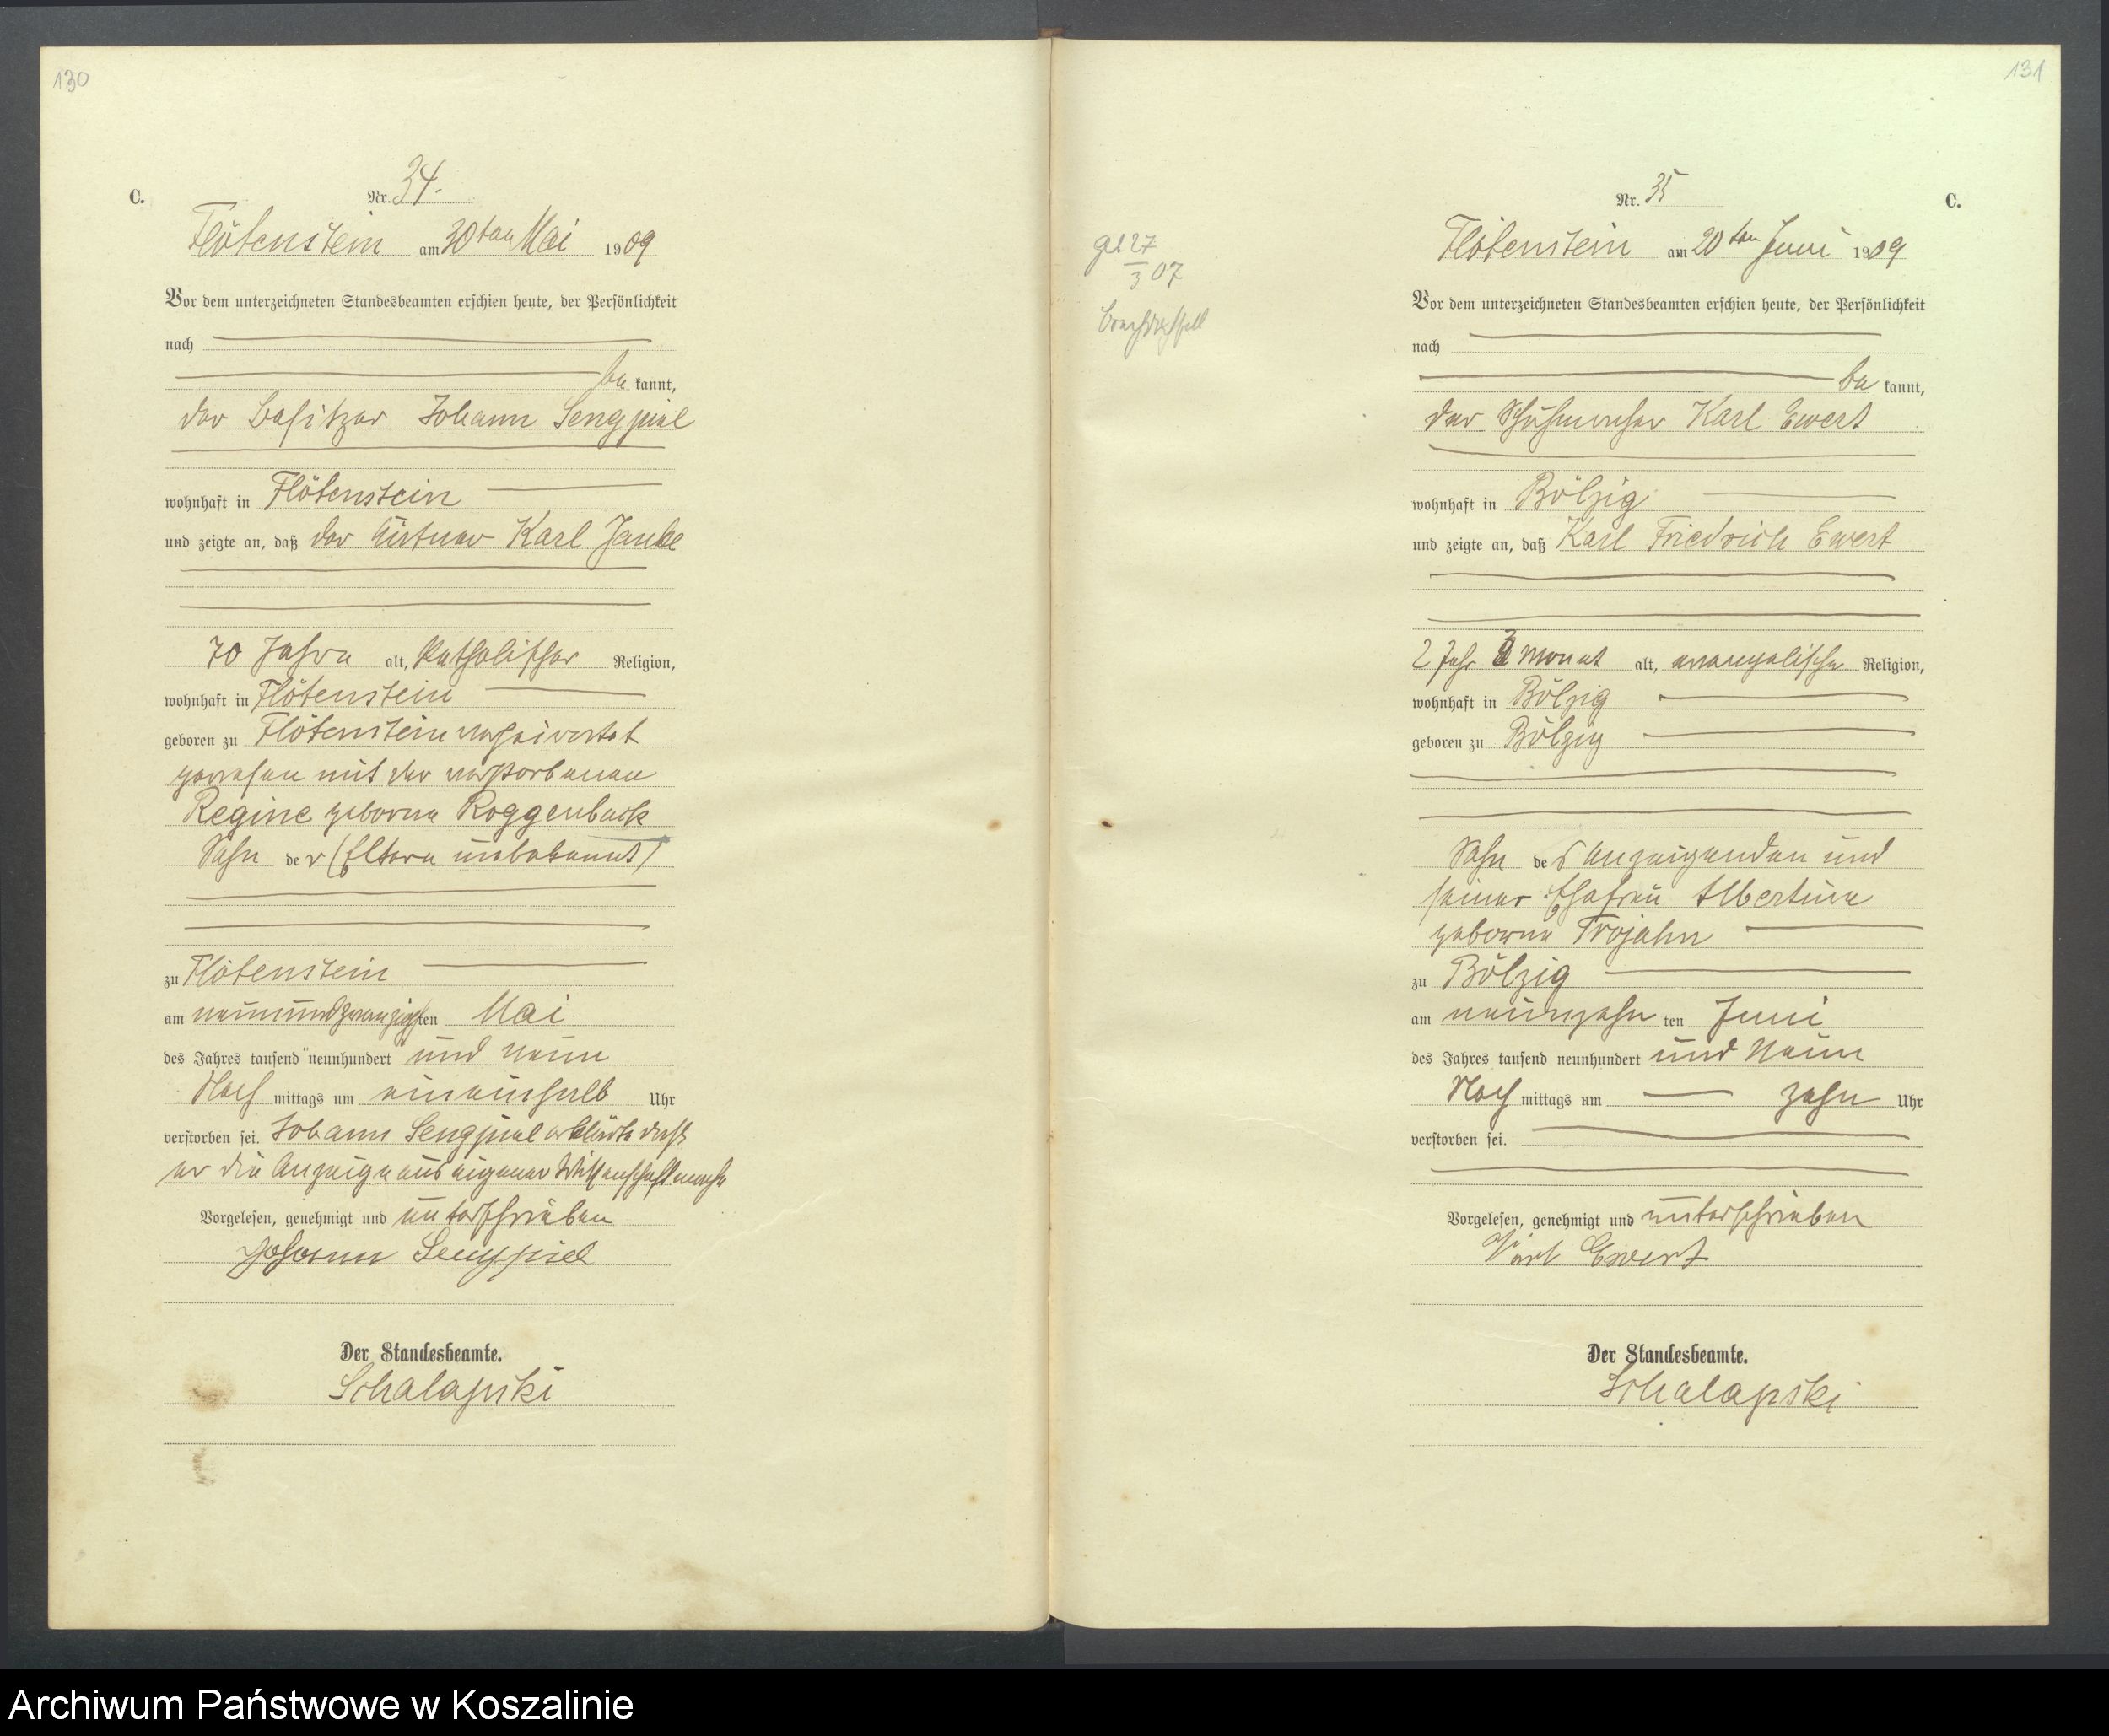 130
C.
Nr. 34.
Flötenstein am 30ten Mai 1909
Vor dem unterzeichneten Standesbeamten erschien heute, der Persönlichkeit
nach
be kannt,
der Besitzer Johann Sengpiel
wohnhaft in Flötenstein
und zeigte an, daß der Karl Janke
70 Jahre alt, katholischer Religion,
wohnhaft in Flötenstein
geboren zu Flötenstein verheiratet
gewesen mit der verstorbenen
Regine geborene Roggenbuck
Sohn der (Eltern unbekannt)
zu Flötenstein
am neunundzwanzigsten Mai
des Jahres tausend neunhundert und neun
Nach mittags um eineinhalb Uhr
verstorben sei. Johann Sengpiel erklärte daß
er die Anzeige aus eigener Wissenschaft mache
Vorgelesen, genehmigt und unterschrieben
Johann Sengpiel
Der Standesbeamte.
Schalapski
131
Nr. 35
C.
27
3 07
Flötenstein am 20ten Juni 1909
Vor dem unterzeichneten Standesbeamten erschien heute, der Persönlichkeit
nach
be kannt,
der Schuhmacher Karl Ewert
wohnhaft in Bölzig
und zeigte an, daß Karl Friedrich Ewert
2 Jahr 3 Monat alt, evangelische Religion,
wohnhaft in Bölzig
geboren zu Bölzig
Sohn des Anzeigenden und
seiner Ehefrau Albertine
geborne Trojahn
zu Bölzig
am neunzehn ten Juni
des Jahres tausend neunhundert und neun
Nach mittags um zehn Uhr
verstorben sei.
Vorgelesen, genehmigt und unterschrieben
Karl Ewert
Der Standesbeamte.
Schalapski
Archiwum Państwowe w Koszalinie